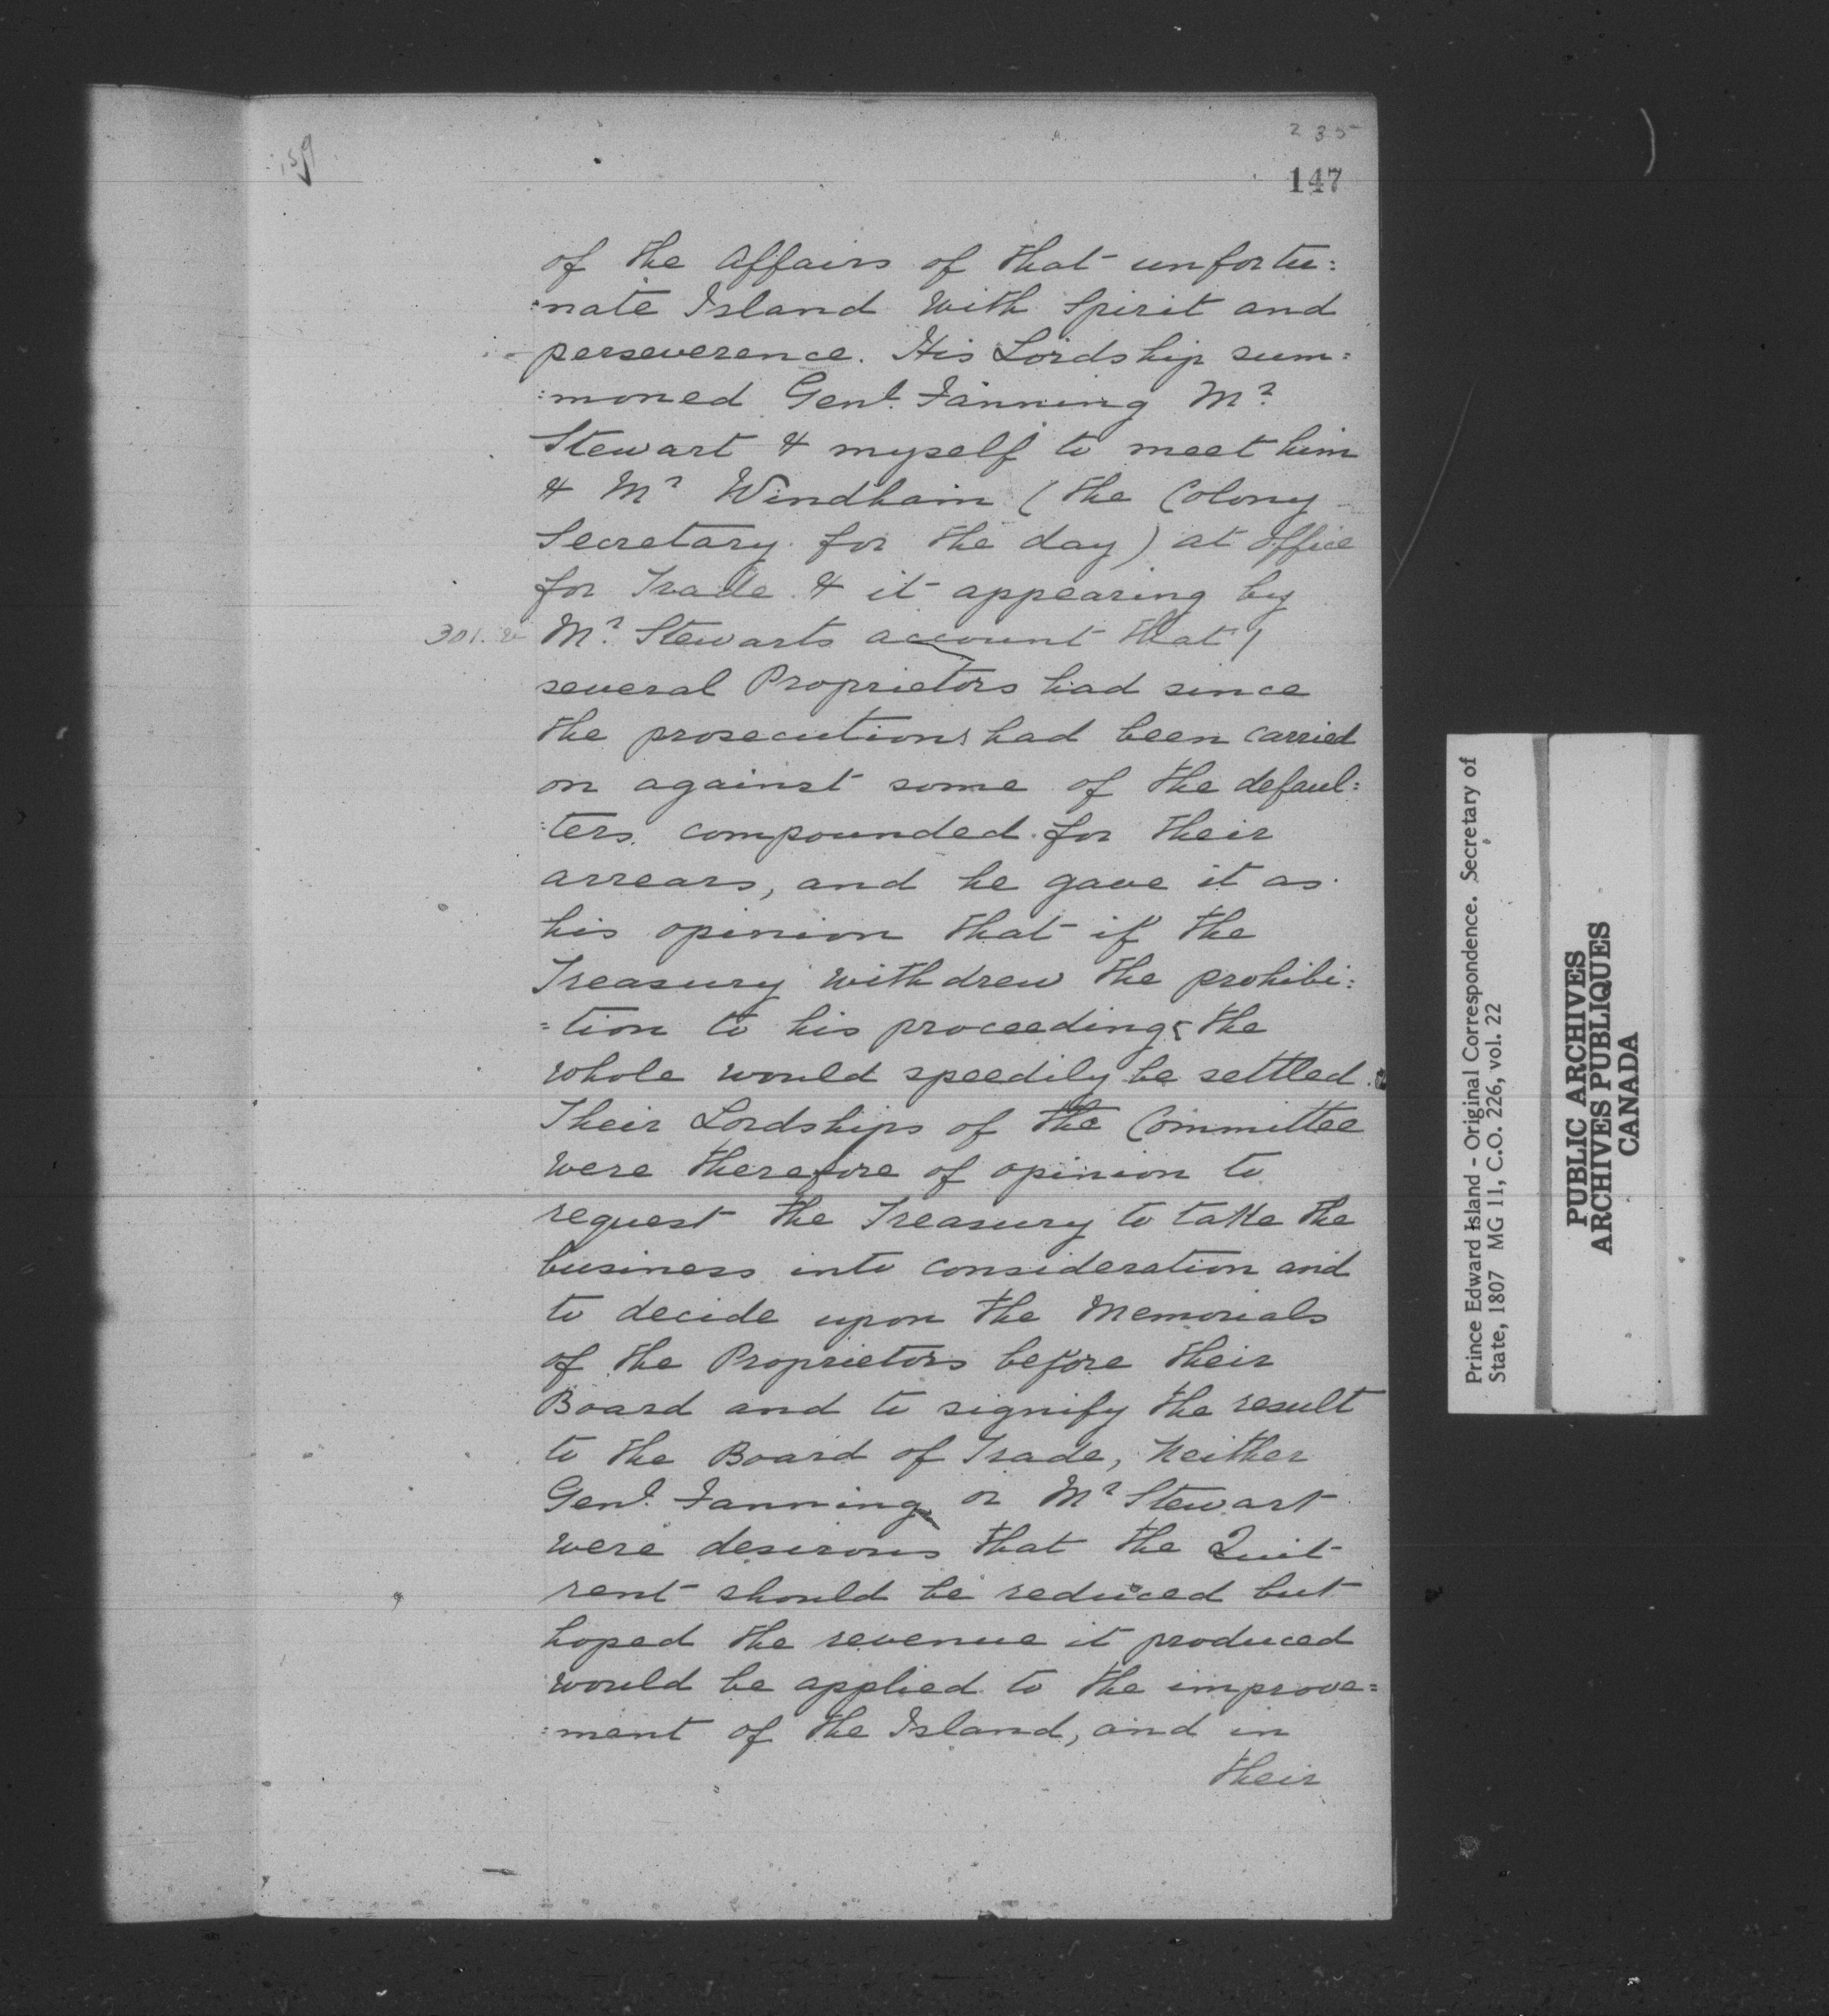 235
147
of the Affairs of that unfortu:
:nate Island with Spirit and
perseverence. His Lordship sum:
:moned Genl. Fanning Mr.
Stewart & myself to meet him
& Mr Windham (the Colony
Secretary for the day) at Office
for Trade & it appearing by
Mr. Stewarts account that /
several Proprietors had since
the prosecutions had been carried
on against some of the defaul:
:ters compounded for their
arrears, and he gave it as
his opinion that if the
Treasury withdrew the prohibi:
:tion to his proceedings the
whole would speedily be settled.
Their Lordships of the Committee
were therefore of opinion to
request the Treasury to take the
business into consideration and
to decide upon the Memorials
of the Proprietors before their
Board and to signify the result
to the Board of Trade, Neither
Genl. Fanning or Mr Stewart
were desirous that the Quit
rent should be reduced but
hoped the revenue it produced
would be applied to the improve=
:ment of the Island, and in
their
Prince Edward Island - Original Correspondence. Secretary of
State, 1807 MG 11, C.O. 226, vol. 22
PUBLIC ARCHIVES
ARCHIVES PUBLIQUES
CANADA